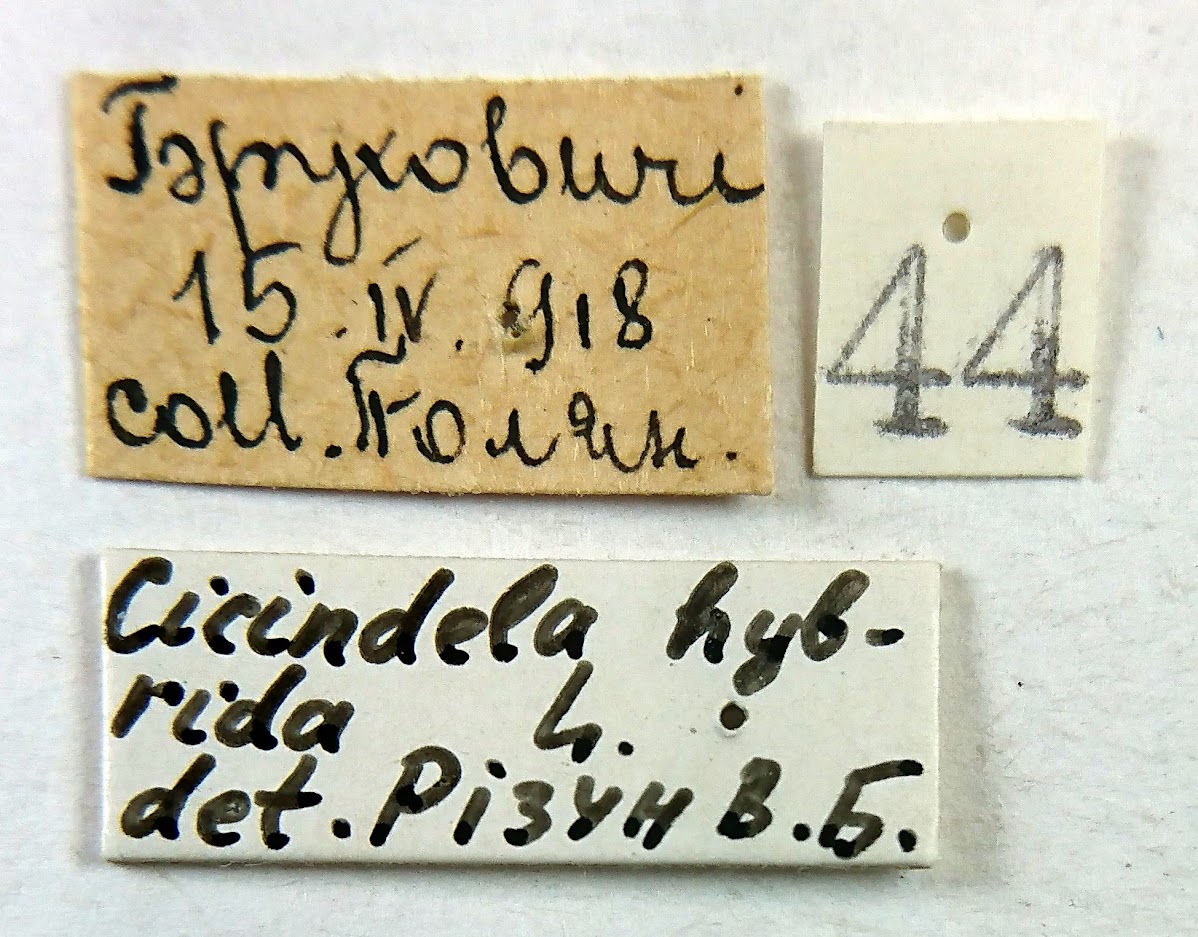 Брухович
15.IV.918
coll. Полян.
44
Cicindela hyb-
rida L.
det. Різун В.Б.